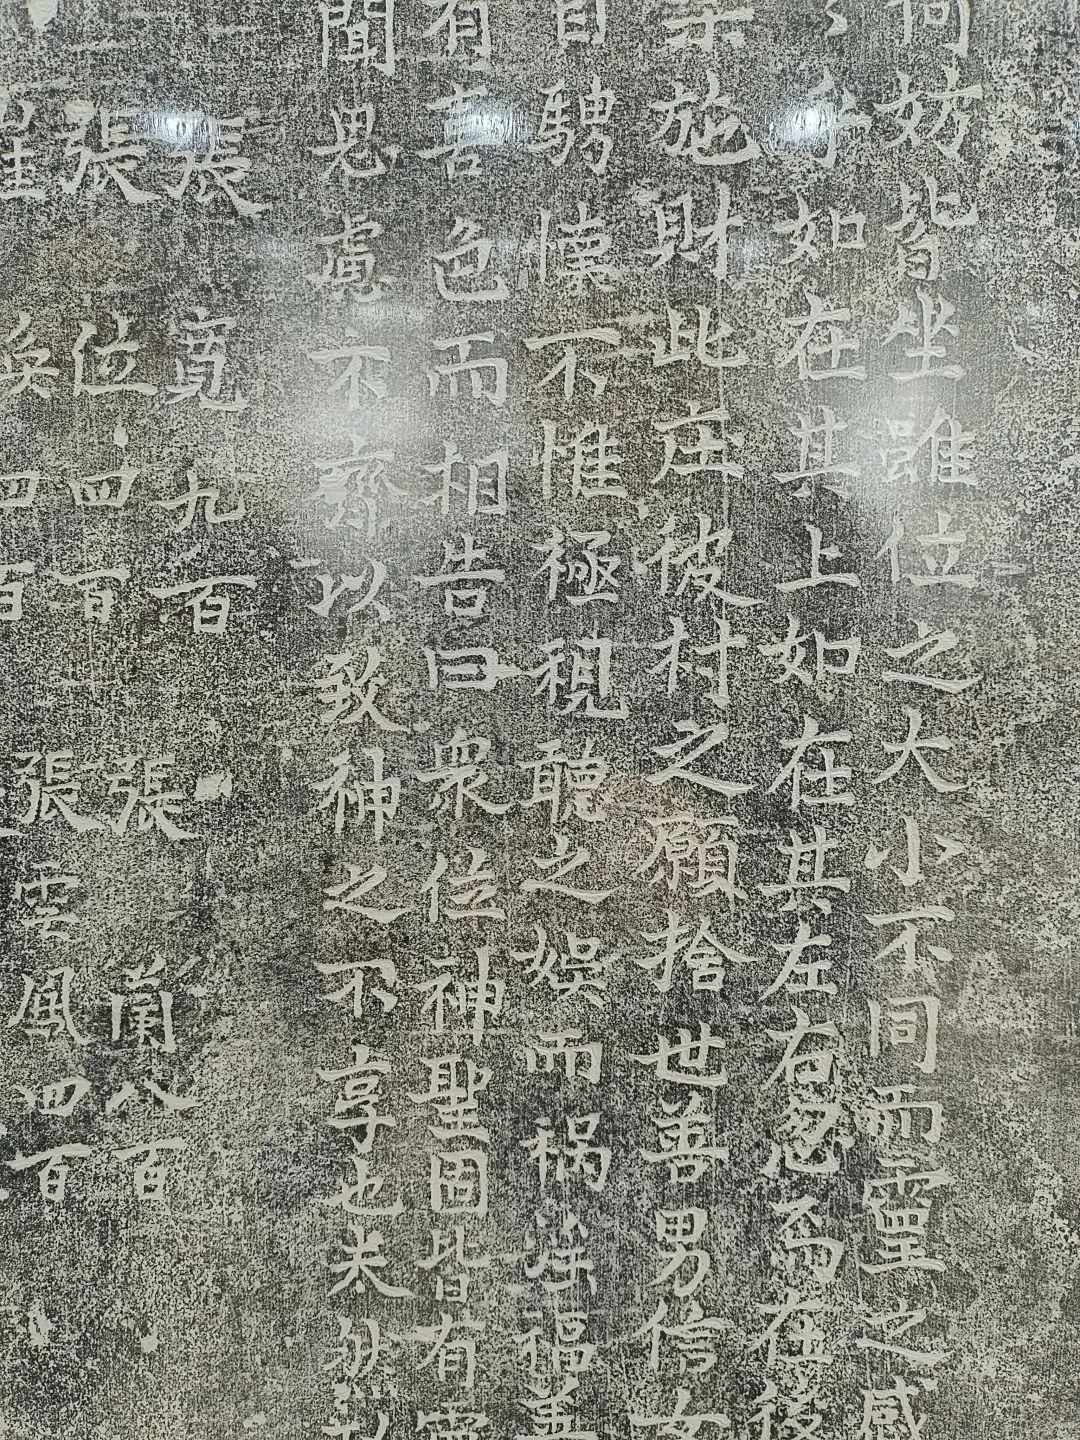 何妨皆坐雖位之大小不同而靈之感
如在其上如在其左右忽而在後
施財此庄彼村之願捨世善男信女
目騁懷不惟極視聽之娛而禍淫福善
有喜色而相告曰眾位神聖固皆有靈
聞思慮不齊以致神之不享也夫然
張寬九百 張蘭八百
張位四百 張雲鳳四百
四百